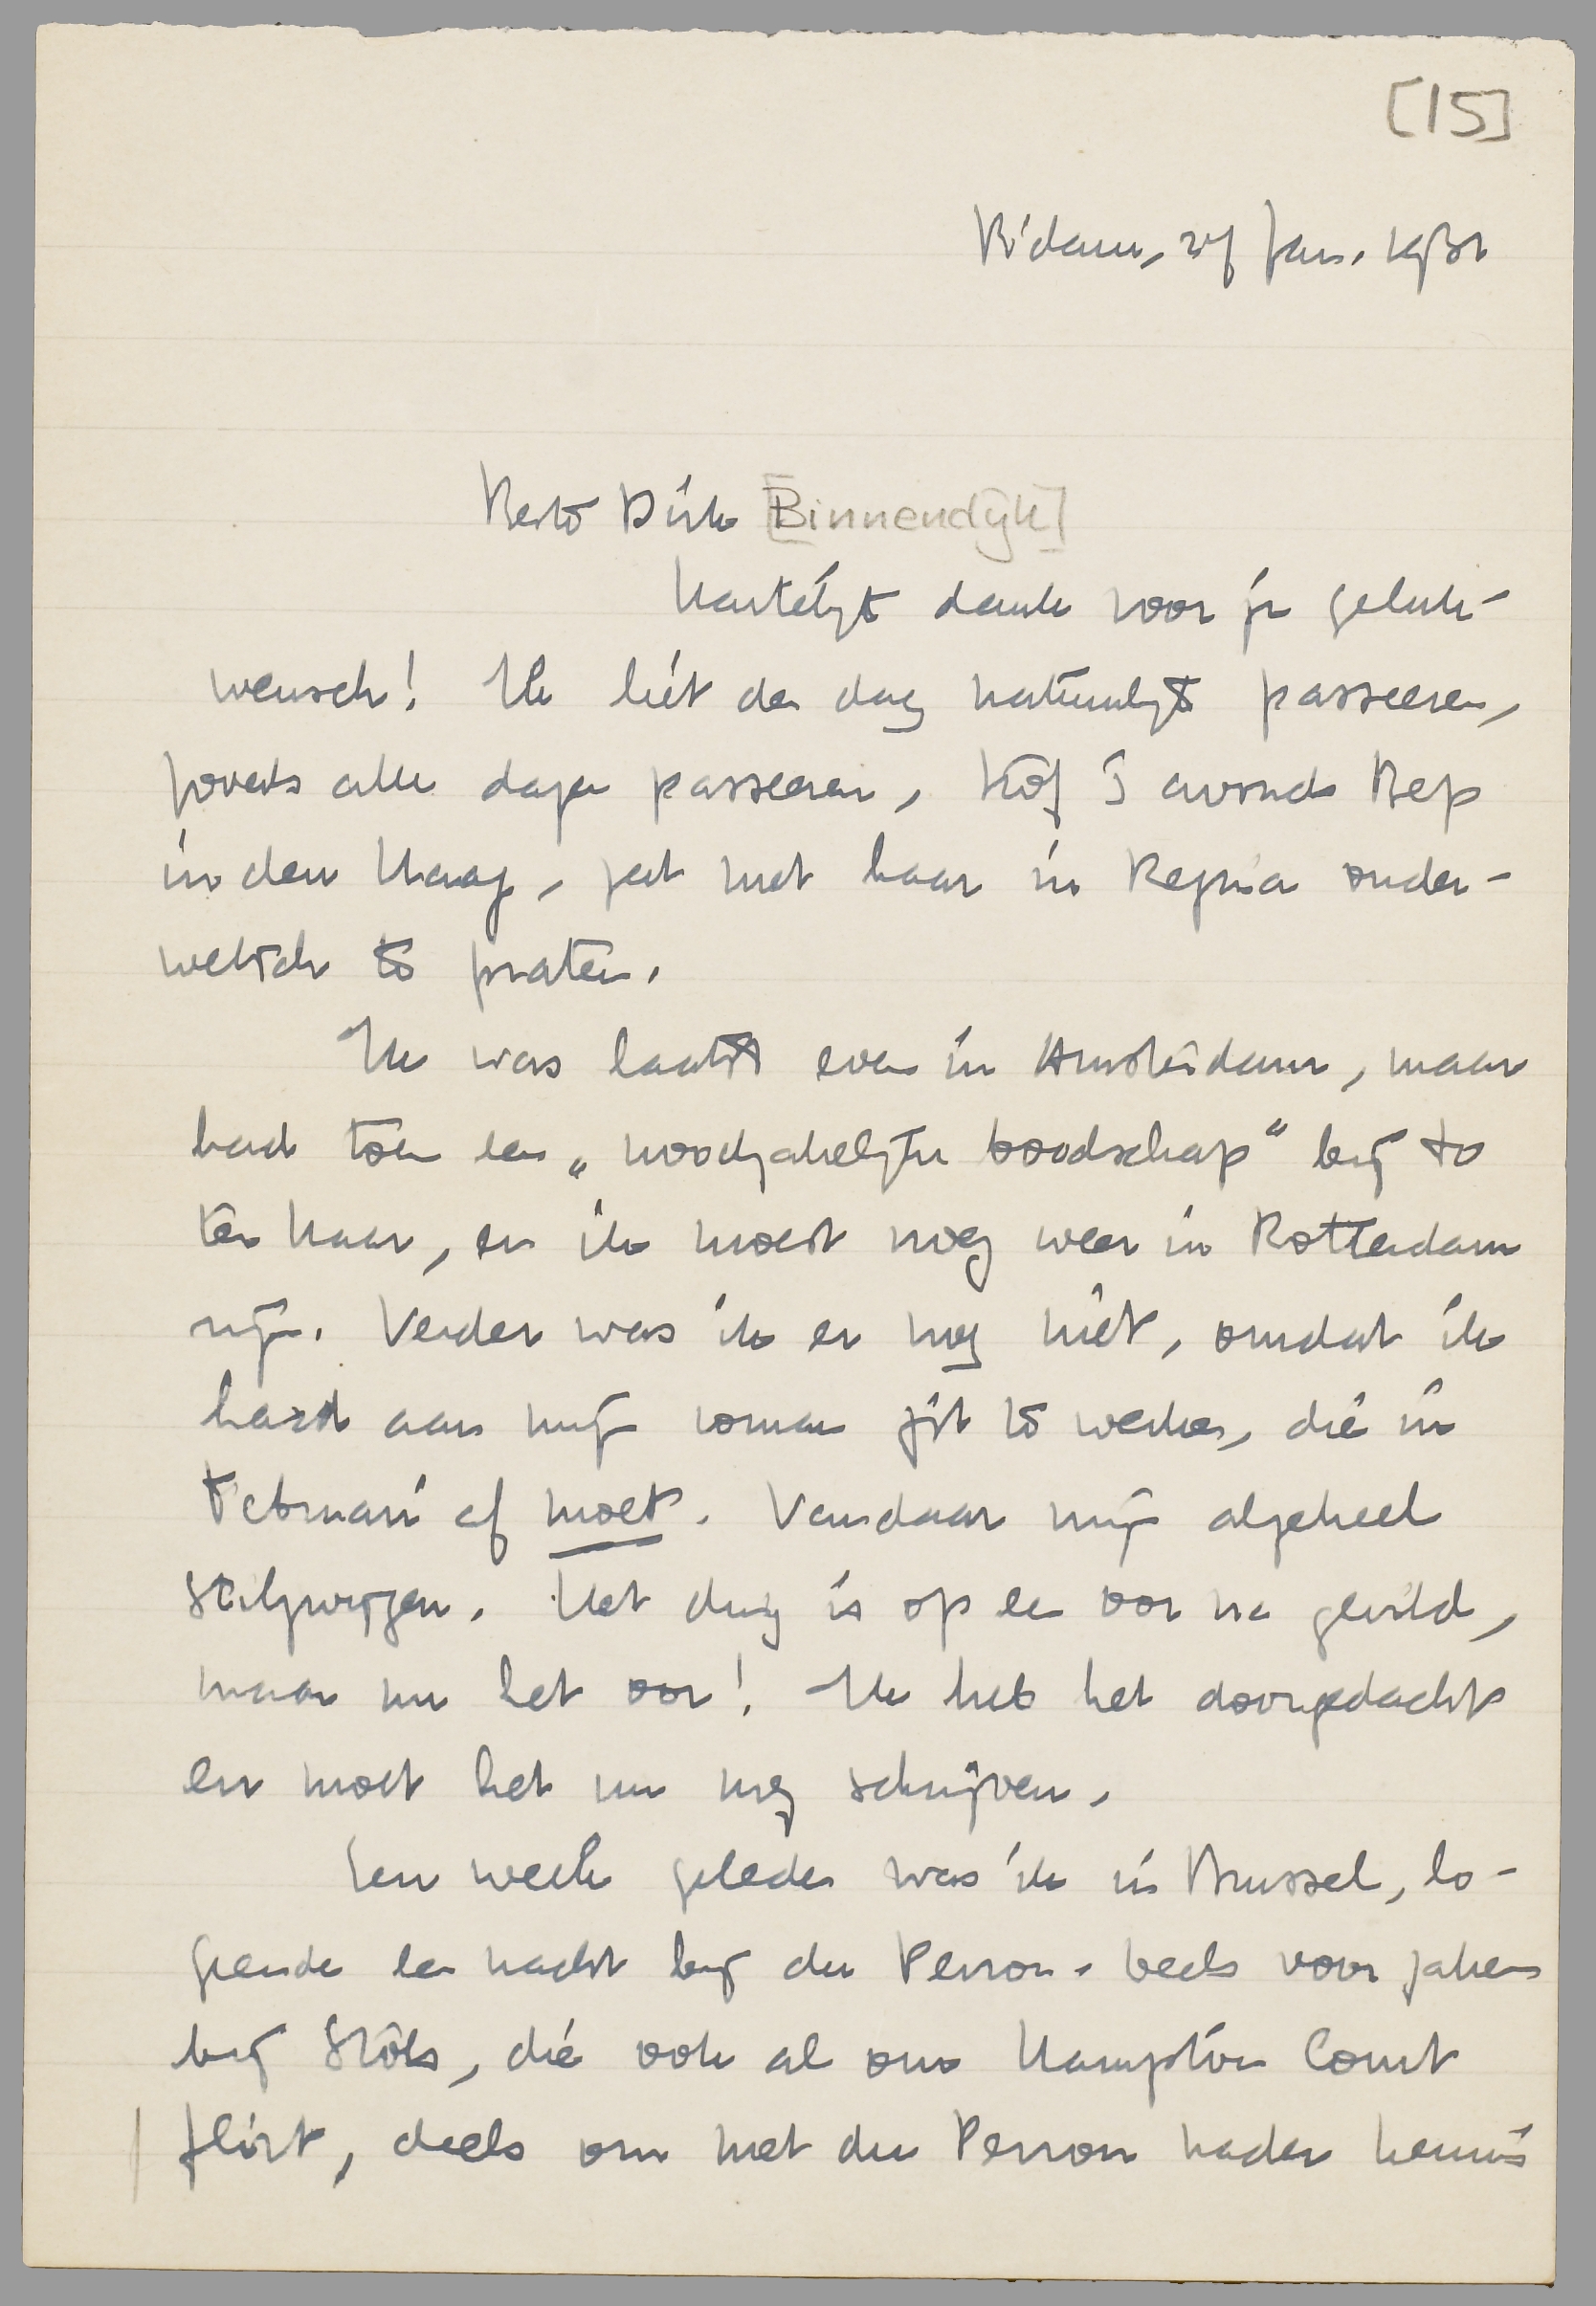 [15]
R'dam, 27 Jan. 1931
Beste Dirk [Binnendijk]
Hartelijk dank voor je geluk-
wensch! Ik liet den dag natuurlijk passeeren,
zooals alle dagen passeeren, trof 's avonds Bep
in den Haag, zat met haar in Regina onder-
welsch te praten.
Ik was laatst even in Amsterdam, maar
had toen een „noodzakelijke boodschap" bij to
ter Haar, en ik moest nog weer in Rotterdam
zijn. Verder was ik er nog niet, omdat ik
hard aan mijn roman zit te werken, die in
Februari af moet. Vandaar mijn algeheel
stilzwijgen. Het ding is op een oor na gevild,
maar nu het oor! Ik heb het doorgedacht
en moet het nu nog schrijven.
Een week geleden was ik in Brussel, lo-
geerde een nacht bij du Perron. Deels voor zaken
bij Stols, die ook al om Hampton Court
flirt, deels om met du Perron nader kennis